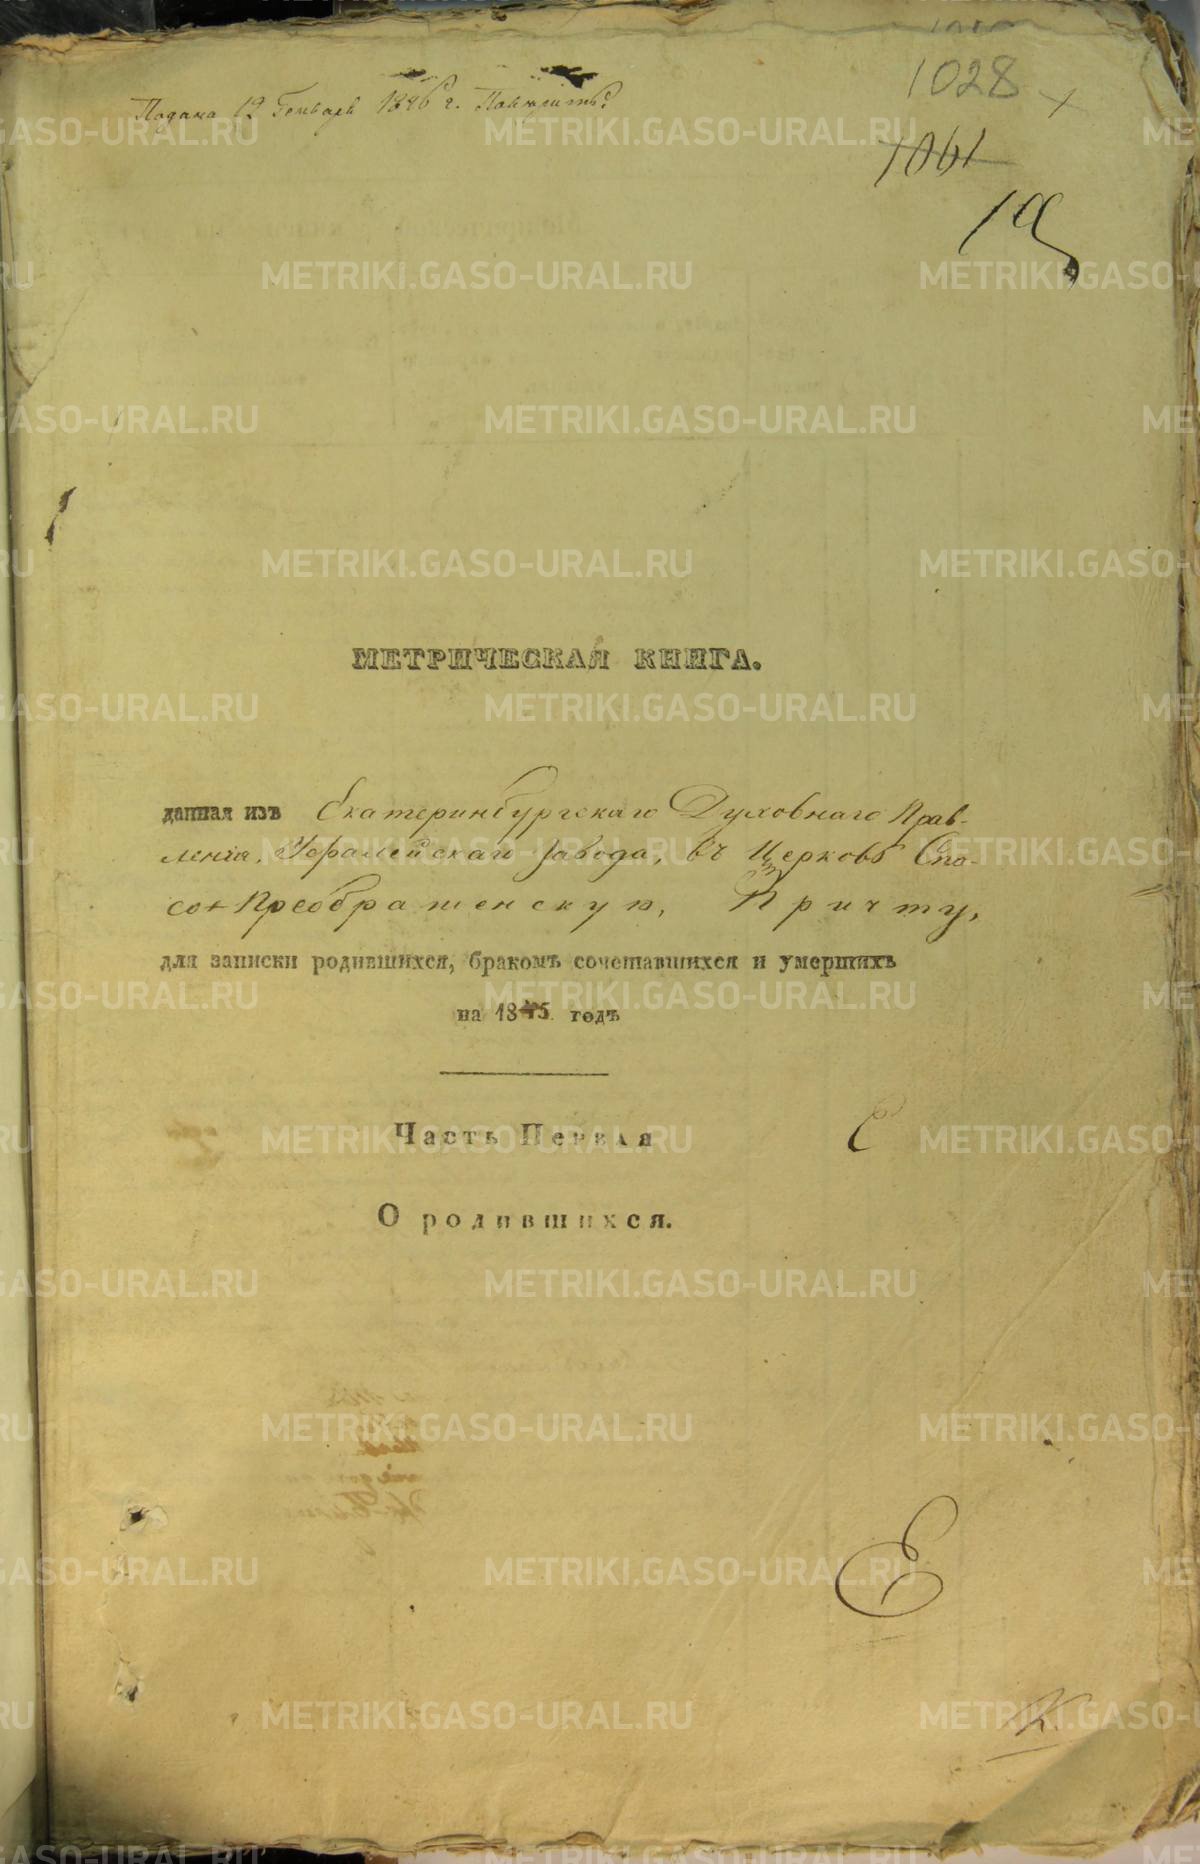 1028
Подана 19 Генваря 1846 г.
1061
METRIKI.GASO-URAL.RU
МЕТРИЧЕСКАЯ КНИГА.
данная изъ Екатеринбургскаго Духовнаго Прав-
ленія, Уфалейскаго завода, въ Церковь Спа-
со-Преображенскую, Причту,
для записки родившихся, бракомъ сочетавшихся и умершихъ
на 1845 годъ
Часть Первая
О родившихся.